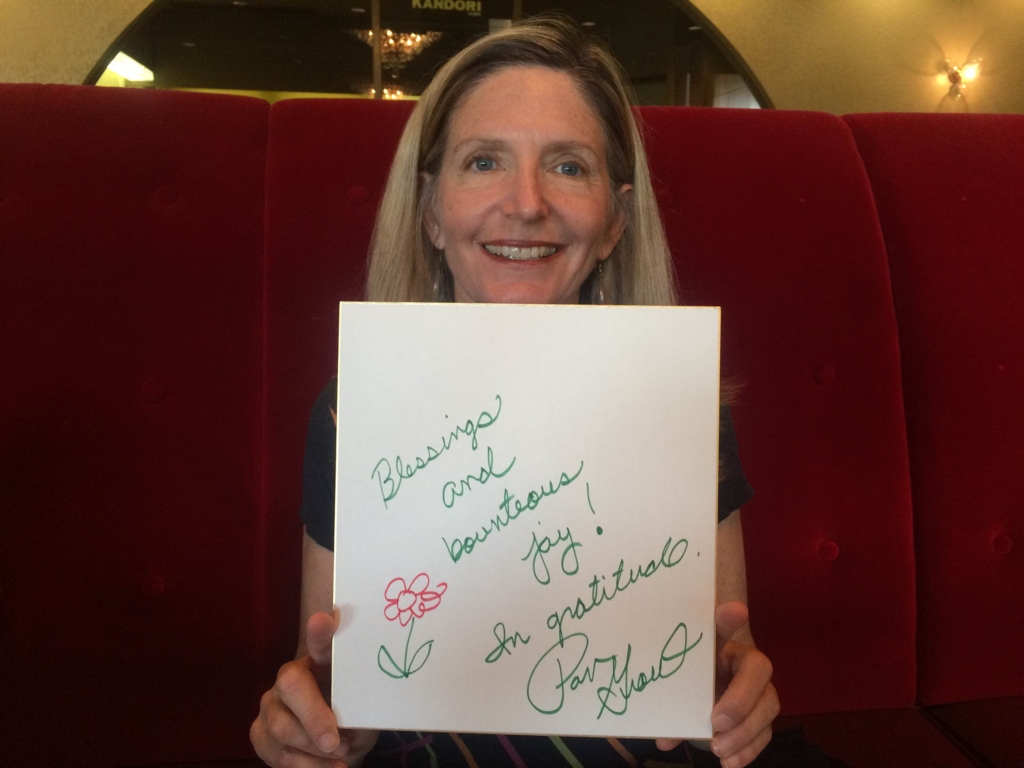 KANDORI
Blessings
and
bounteous
joy!
In gratitude.
Pam Grout